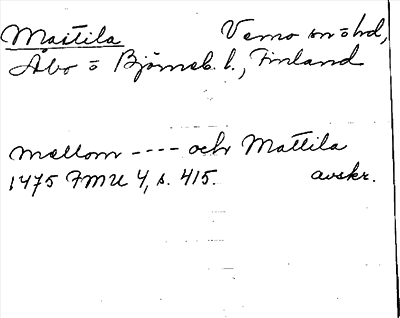 Mastila Vemo sn o hd,
Åbo o Björneb. l., Finland
mellom ---- och Mattila
1475 FMU 4, s. 415. avskr.